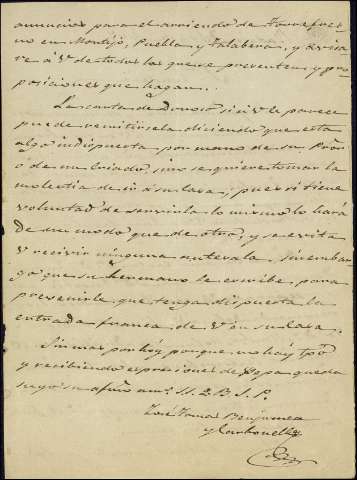 anuncios para el arriendo de Torrefres-
no en Montijo, Puebla y Talabera, y avisa-
re á V. de todos los que se presenten y pro-
posiciones que hagan.
La carta de Donoso si á V. le parece
puede remitirsela diciendo que está
algo indispuesta por mano de su
ó de un criado, sino se quiere tomar la
molestia de ir á su casa; pues si tiene
voluntad de servirla lo mismo lo hará
de un modo que de otro, y se evita
V. recivir ninguna antesala. Sin embar-
go que su hermano le escribe para
prevenirle que tenga dispuesta la
entrada franca de V. en su casa.
Sin mas por hoy porque no hay tpô
y recibiendo espresiones de Pepa queda
suyo su afmo am.º S.S. Q. B. S. P.
José Tomas Benjumea
y Carbonell